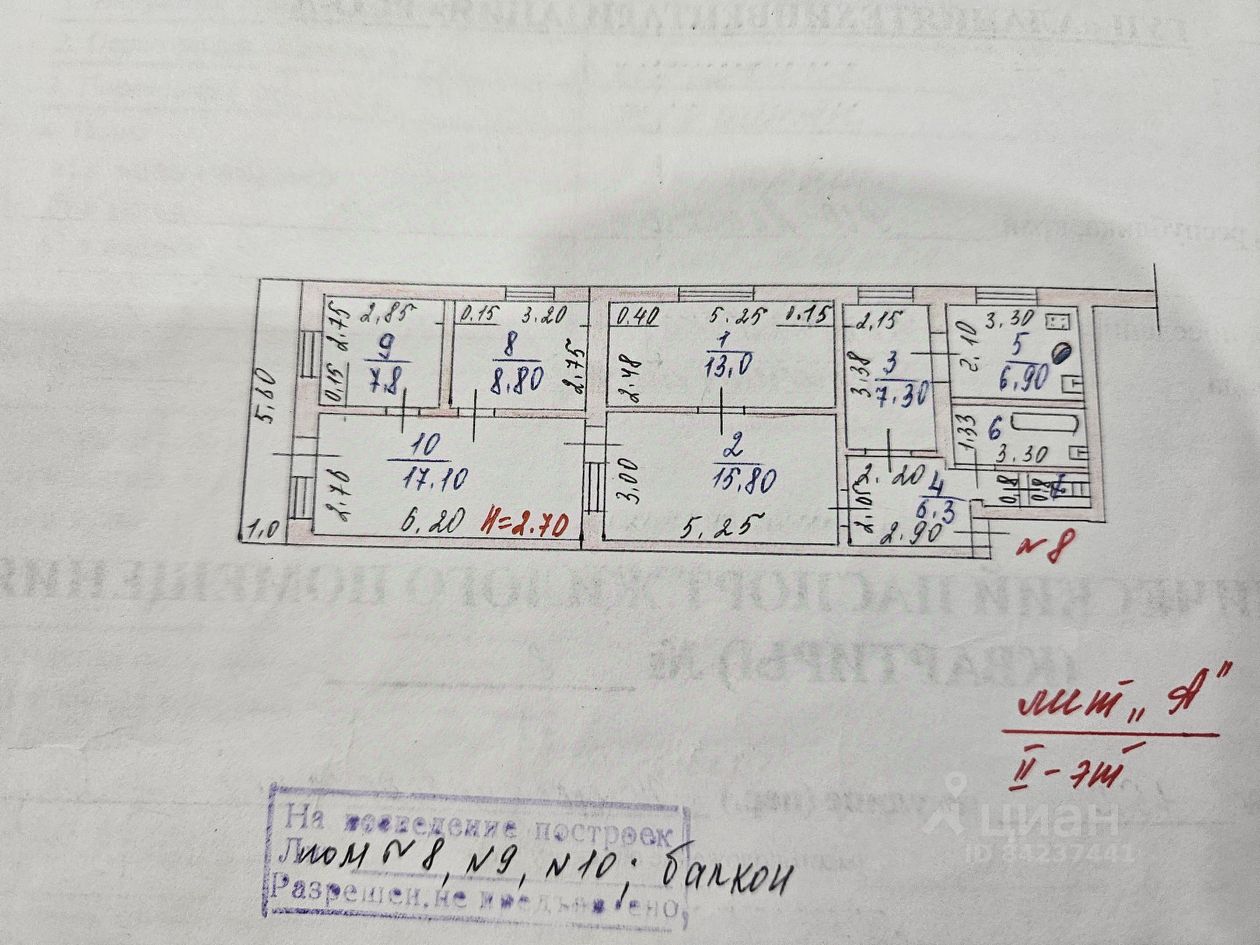 2,85
0.15
3.20
0.40
5.25
0.15
2,15
3.30
2.75
9
7.8
0,15
8
8.80
2.75
1
13,0
2.48
3
7.30
3.38
2.10
5
6.90
5.60
10
17.10
2.70
6.20
H=2.70
2
15.80
3.00
5,25
2.20
4
6.3
2.05
2.90
6
1.33
3.30
0.8
0.8
1,0
№8
лит „А"
II-эт
На возведение построек
Л пом №8, №9, №10; балкон
Разрешен. не предъявлено,
циан